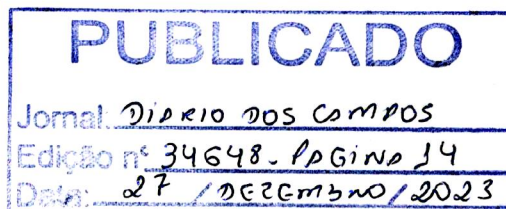 PUBLICADO
Jornal: DIARIO DOS CAMPOS
Edição nº 34648. PAGINA 14
Data: 27 / DEZEMBRO / 2023